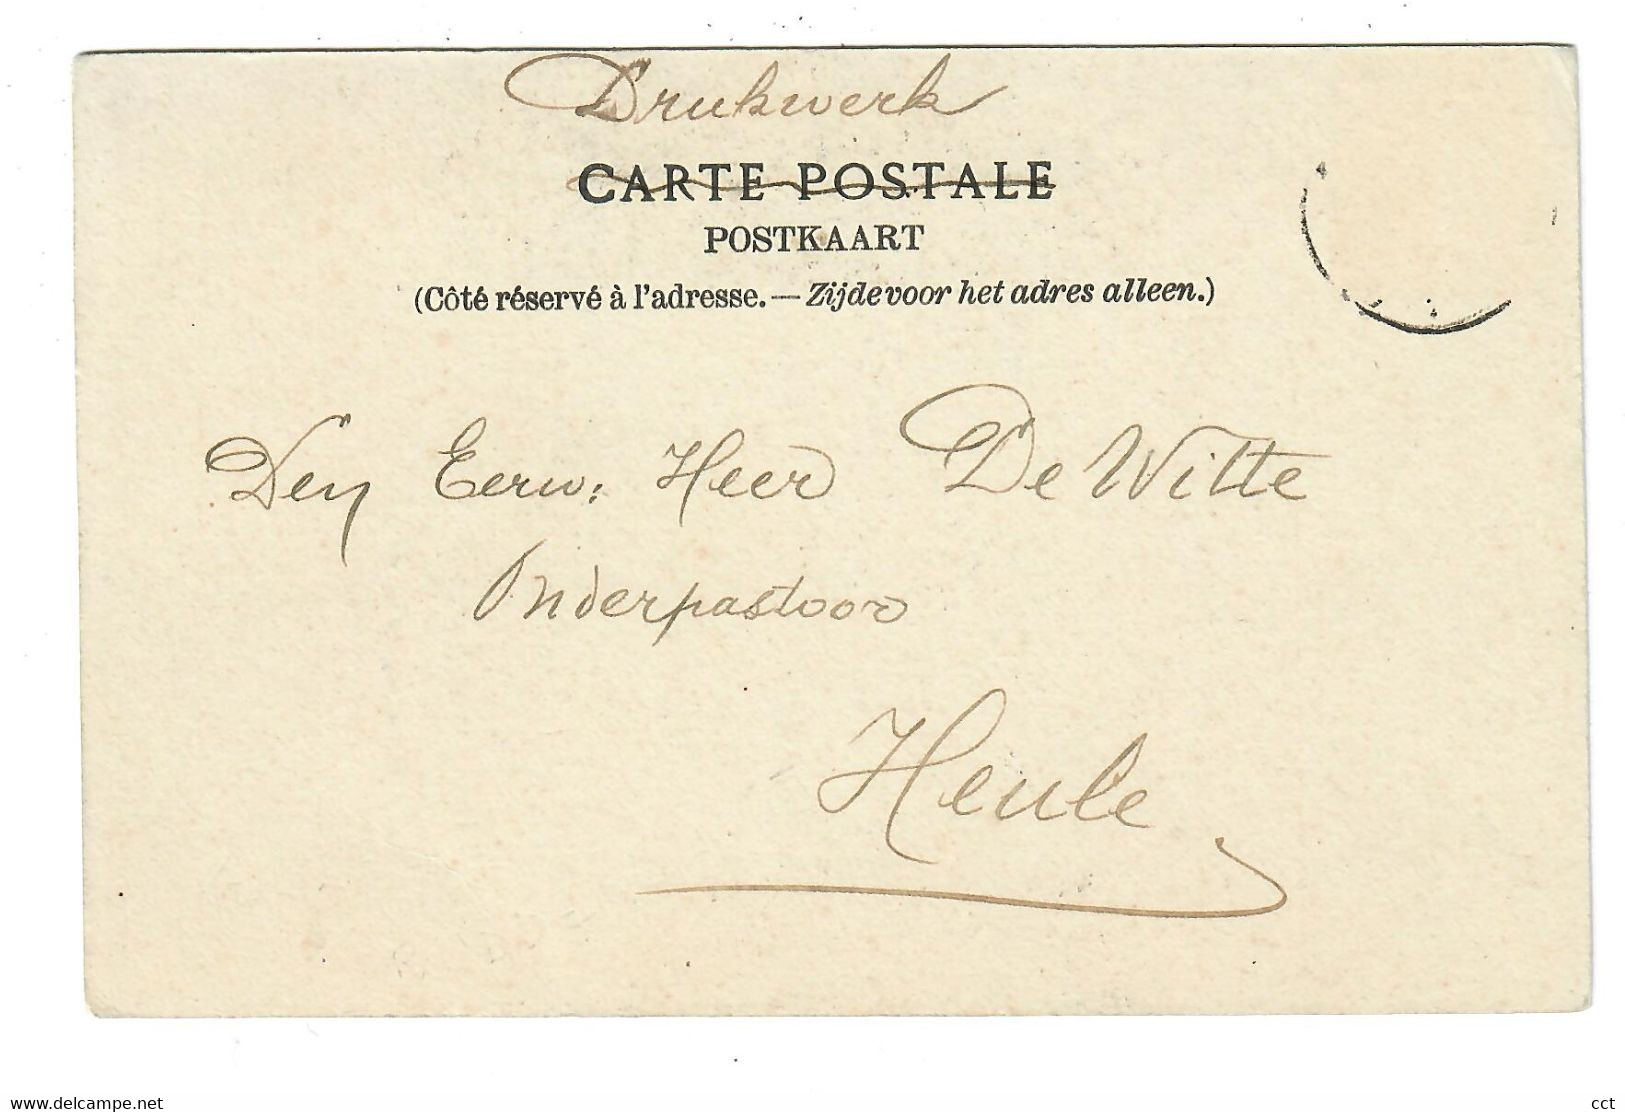 Drukwerk
CARTE POSTALE
POSTKAART
(Côté réservé à l'adresse. — Zijde voor het adres alleen.)
Den Eerw: Heer De Witte
Onderpastoor
Heule
www.delcampe.net
cct